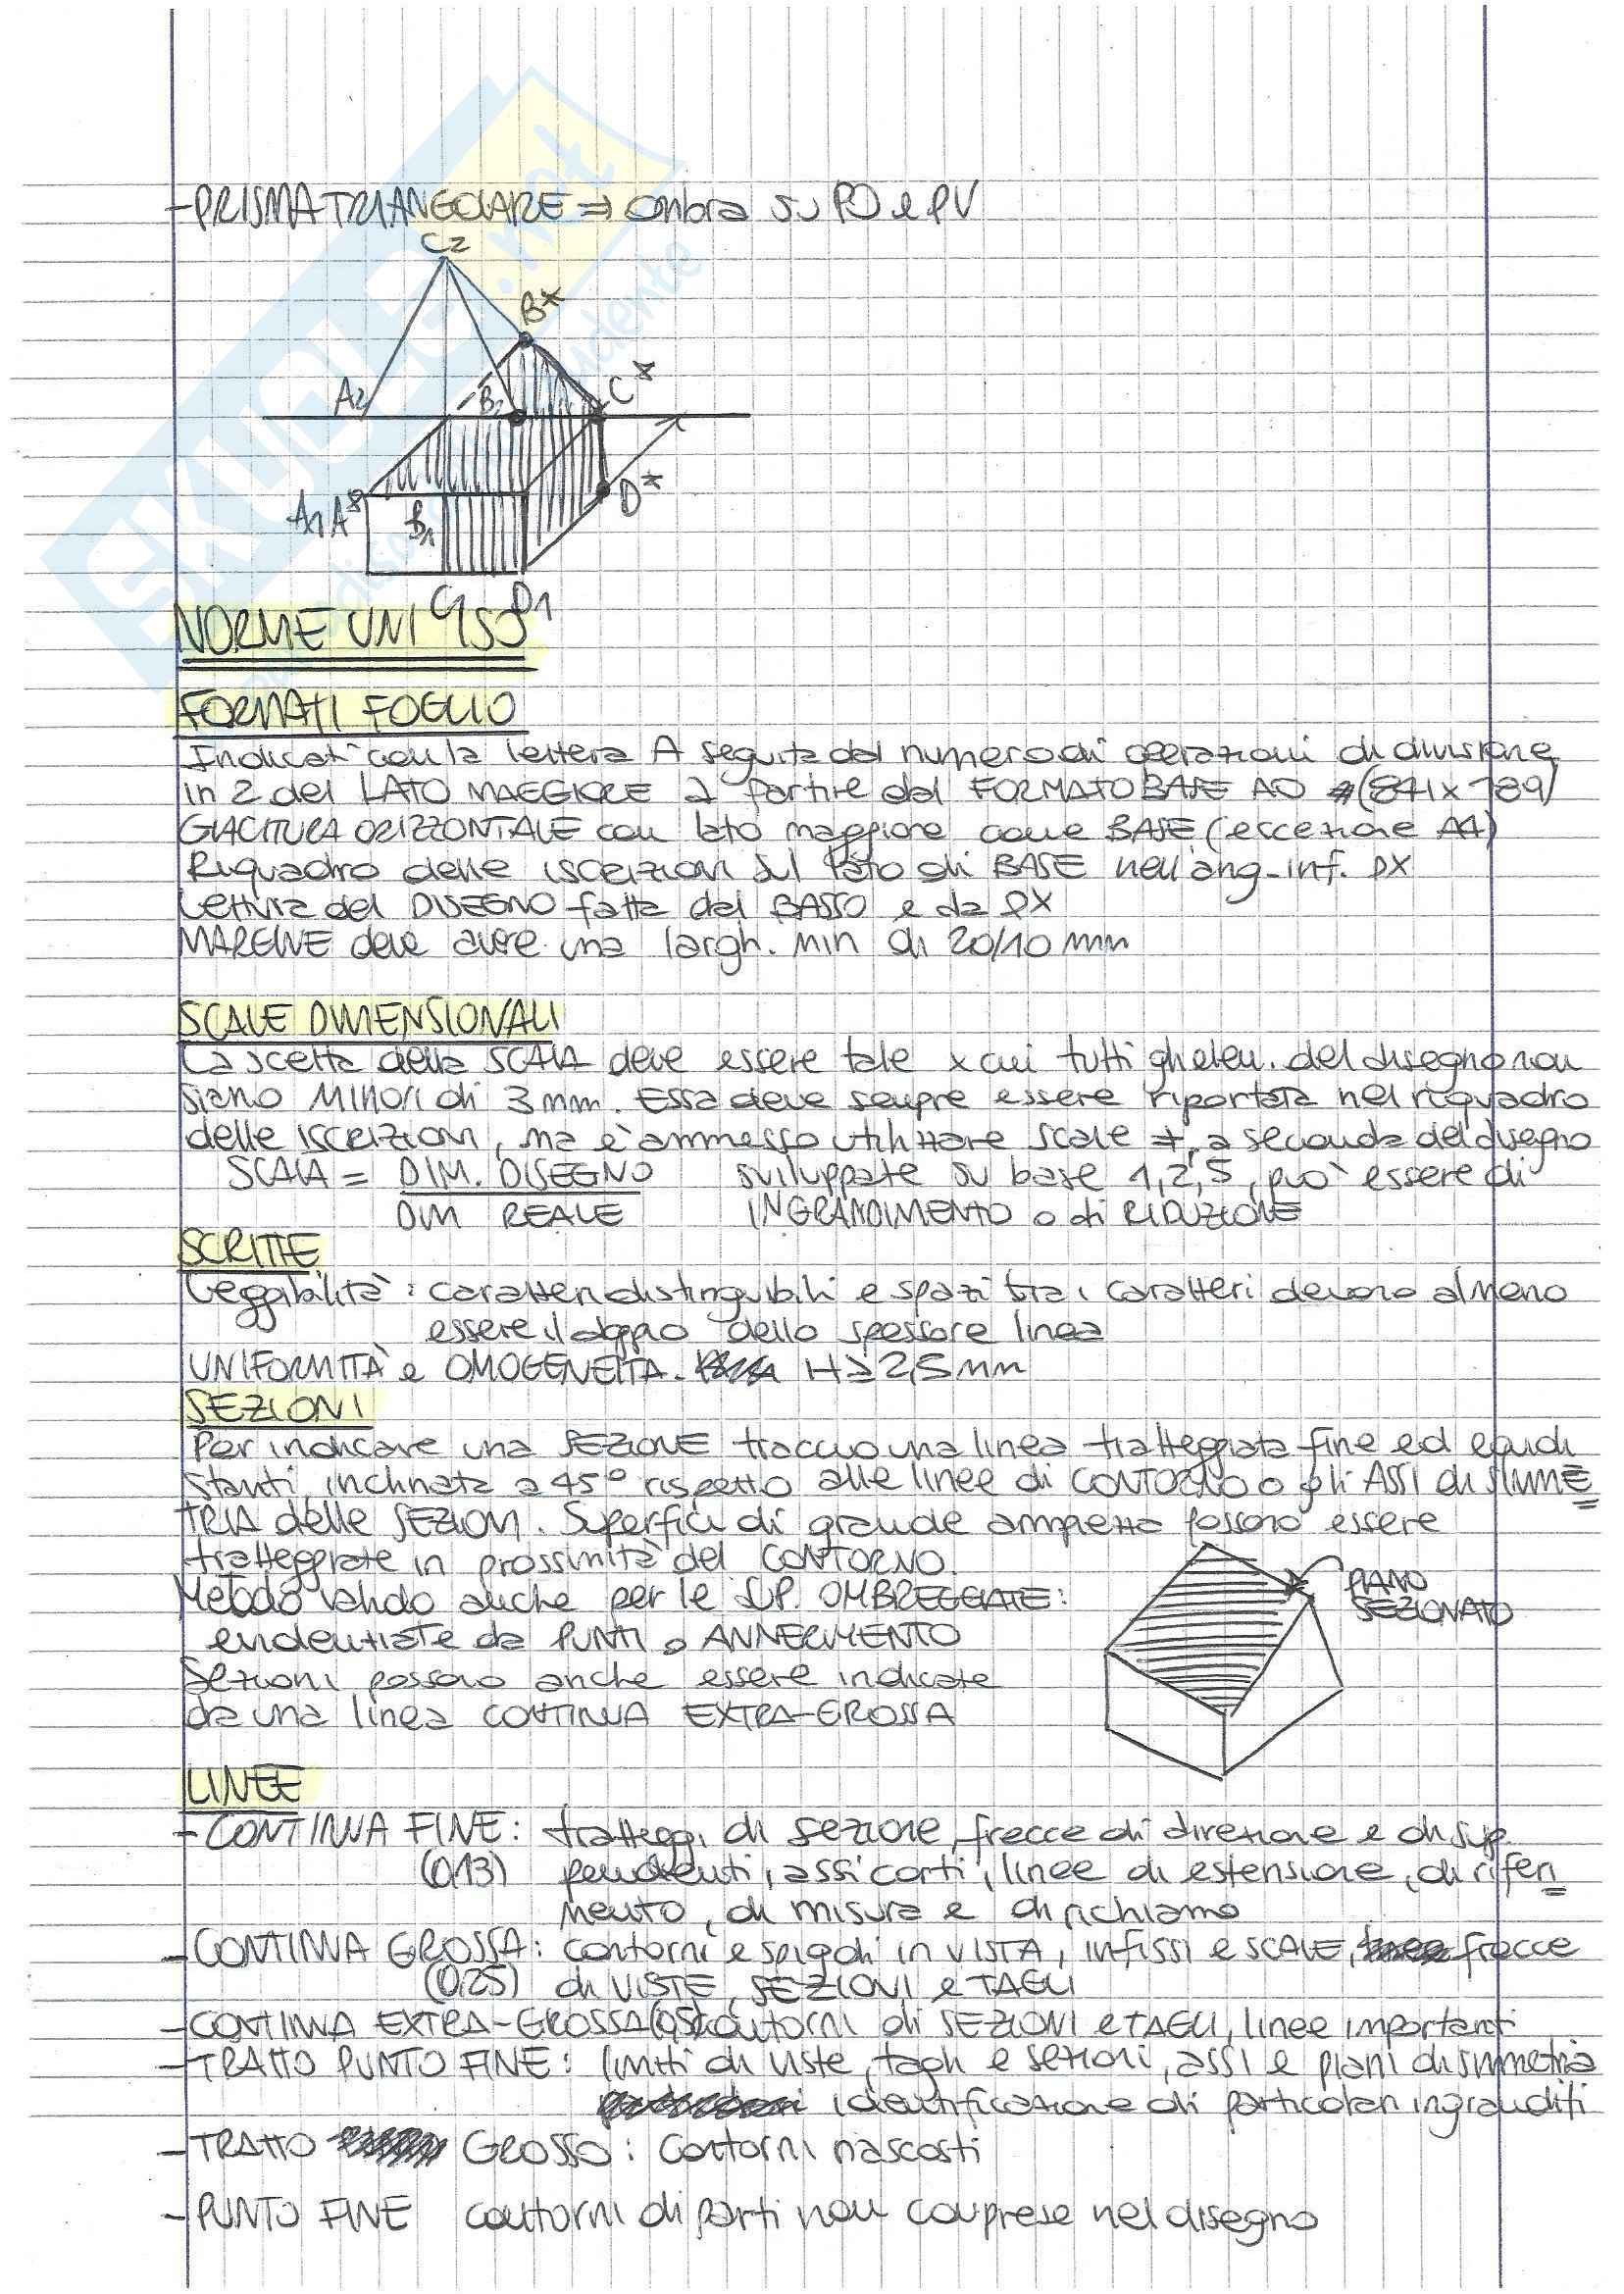 -PRISMA TRIANGOLARE => ombra su PO e PV
C2
B*
A2
B2
C*
A1 A*
B1
D*
C1 D1
NORME UNI ISO
FORMATI FOGLIO
Indicati con la lettera A seguita dal numero di operazioni di divisione
in 2 del LATO MAGGIORE a partire dal FORMATO BASE A0 (841x189)
GIACITURA ORIZZONTALE con lato maggiore come BASE (eccezione A4)
Riquadro delle iscrizioni sul lato di BASE nell'ang-inf. DX
Lettura del DISEGNO fatta dal BASSO e da DX
MARGINE deve avere una largh. min di 20/10 mm
SCALE DIMENSIONALI
La scelta della SCALA deve essere tale x cui tutti gli elem. del disegno non
siano MINORI di 3mm. Essa deve sempre essere riportata nel riquadro
delle ISCRIZIONI, ma è ammesso utilizzare scale ≠, a seconda del disegno
SCALA = DIM. DISEGNO sviluppate su base 1,2,5, può essere di
DIM REALE INGRANDIMENTO o di RIDUZIONE
SCRITTE
Leggibilità: caratteri distinguibili e spazi tra i caratteri devono almeno
essere il doppio dello spessore linea
UNIFORMITÀ e OMOGENEITÀ. H≥2,5mm
SEZIONI
Per indicare una SEZIONE traccio una linea tratteggiata fine ed equidi
stanti, inclinata a 45° rispetto alle linee di CONTORNO o gli ASSI di SIMME
TRIA delle SEZIONI. Superfici di grande ampiezza possono essere
tratteggiate in prossimità del CONTORNO.
Metodo valido anche per le SUP. OMBREGGIATE:
evidenziate da PUNTI o ANNERIMENTO
PIANO
SEZIONATO
Sezioni possono anche essere indicate
da una linea CONTINUA EXTRA-GROSSA
LINEE
- CONTINUA FINE: tratteggi di sezione, frecce di direzione e di sup.
(0,13) pendenti, assi corti, linee di estensione, di riferi
mento, di misura e di richiamo
- CONTINUA GROSSA: contorni e spigoli in VISTA, infissi e SCALE, frecce
(0,25) di VISTE, SEZIONI e TAGLI
- CONTINUA EXTRA-GROSSA (0,5): contorni di SEZIONI e TAGLI, linee importanti
- TRATTO PUNTO FINE: limiti di viste, tagli e sezioni, assi e piani di simmetria
identificazione di particolari ingranditi
- TRATTO GROSSO: contorni nascosti
- PUNTO FINE contorni di parti non comprese nel disegno